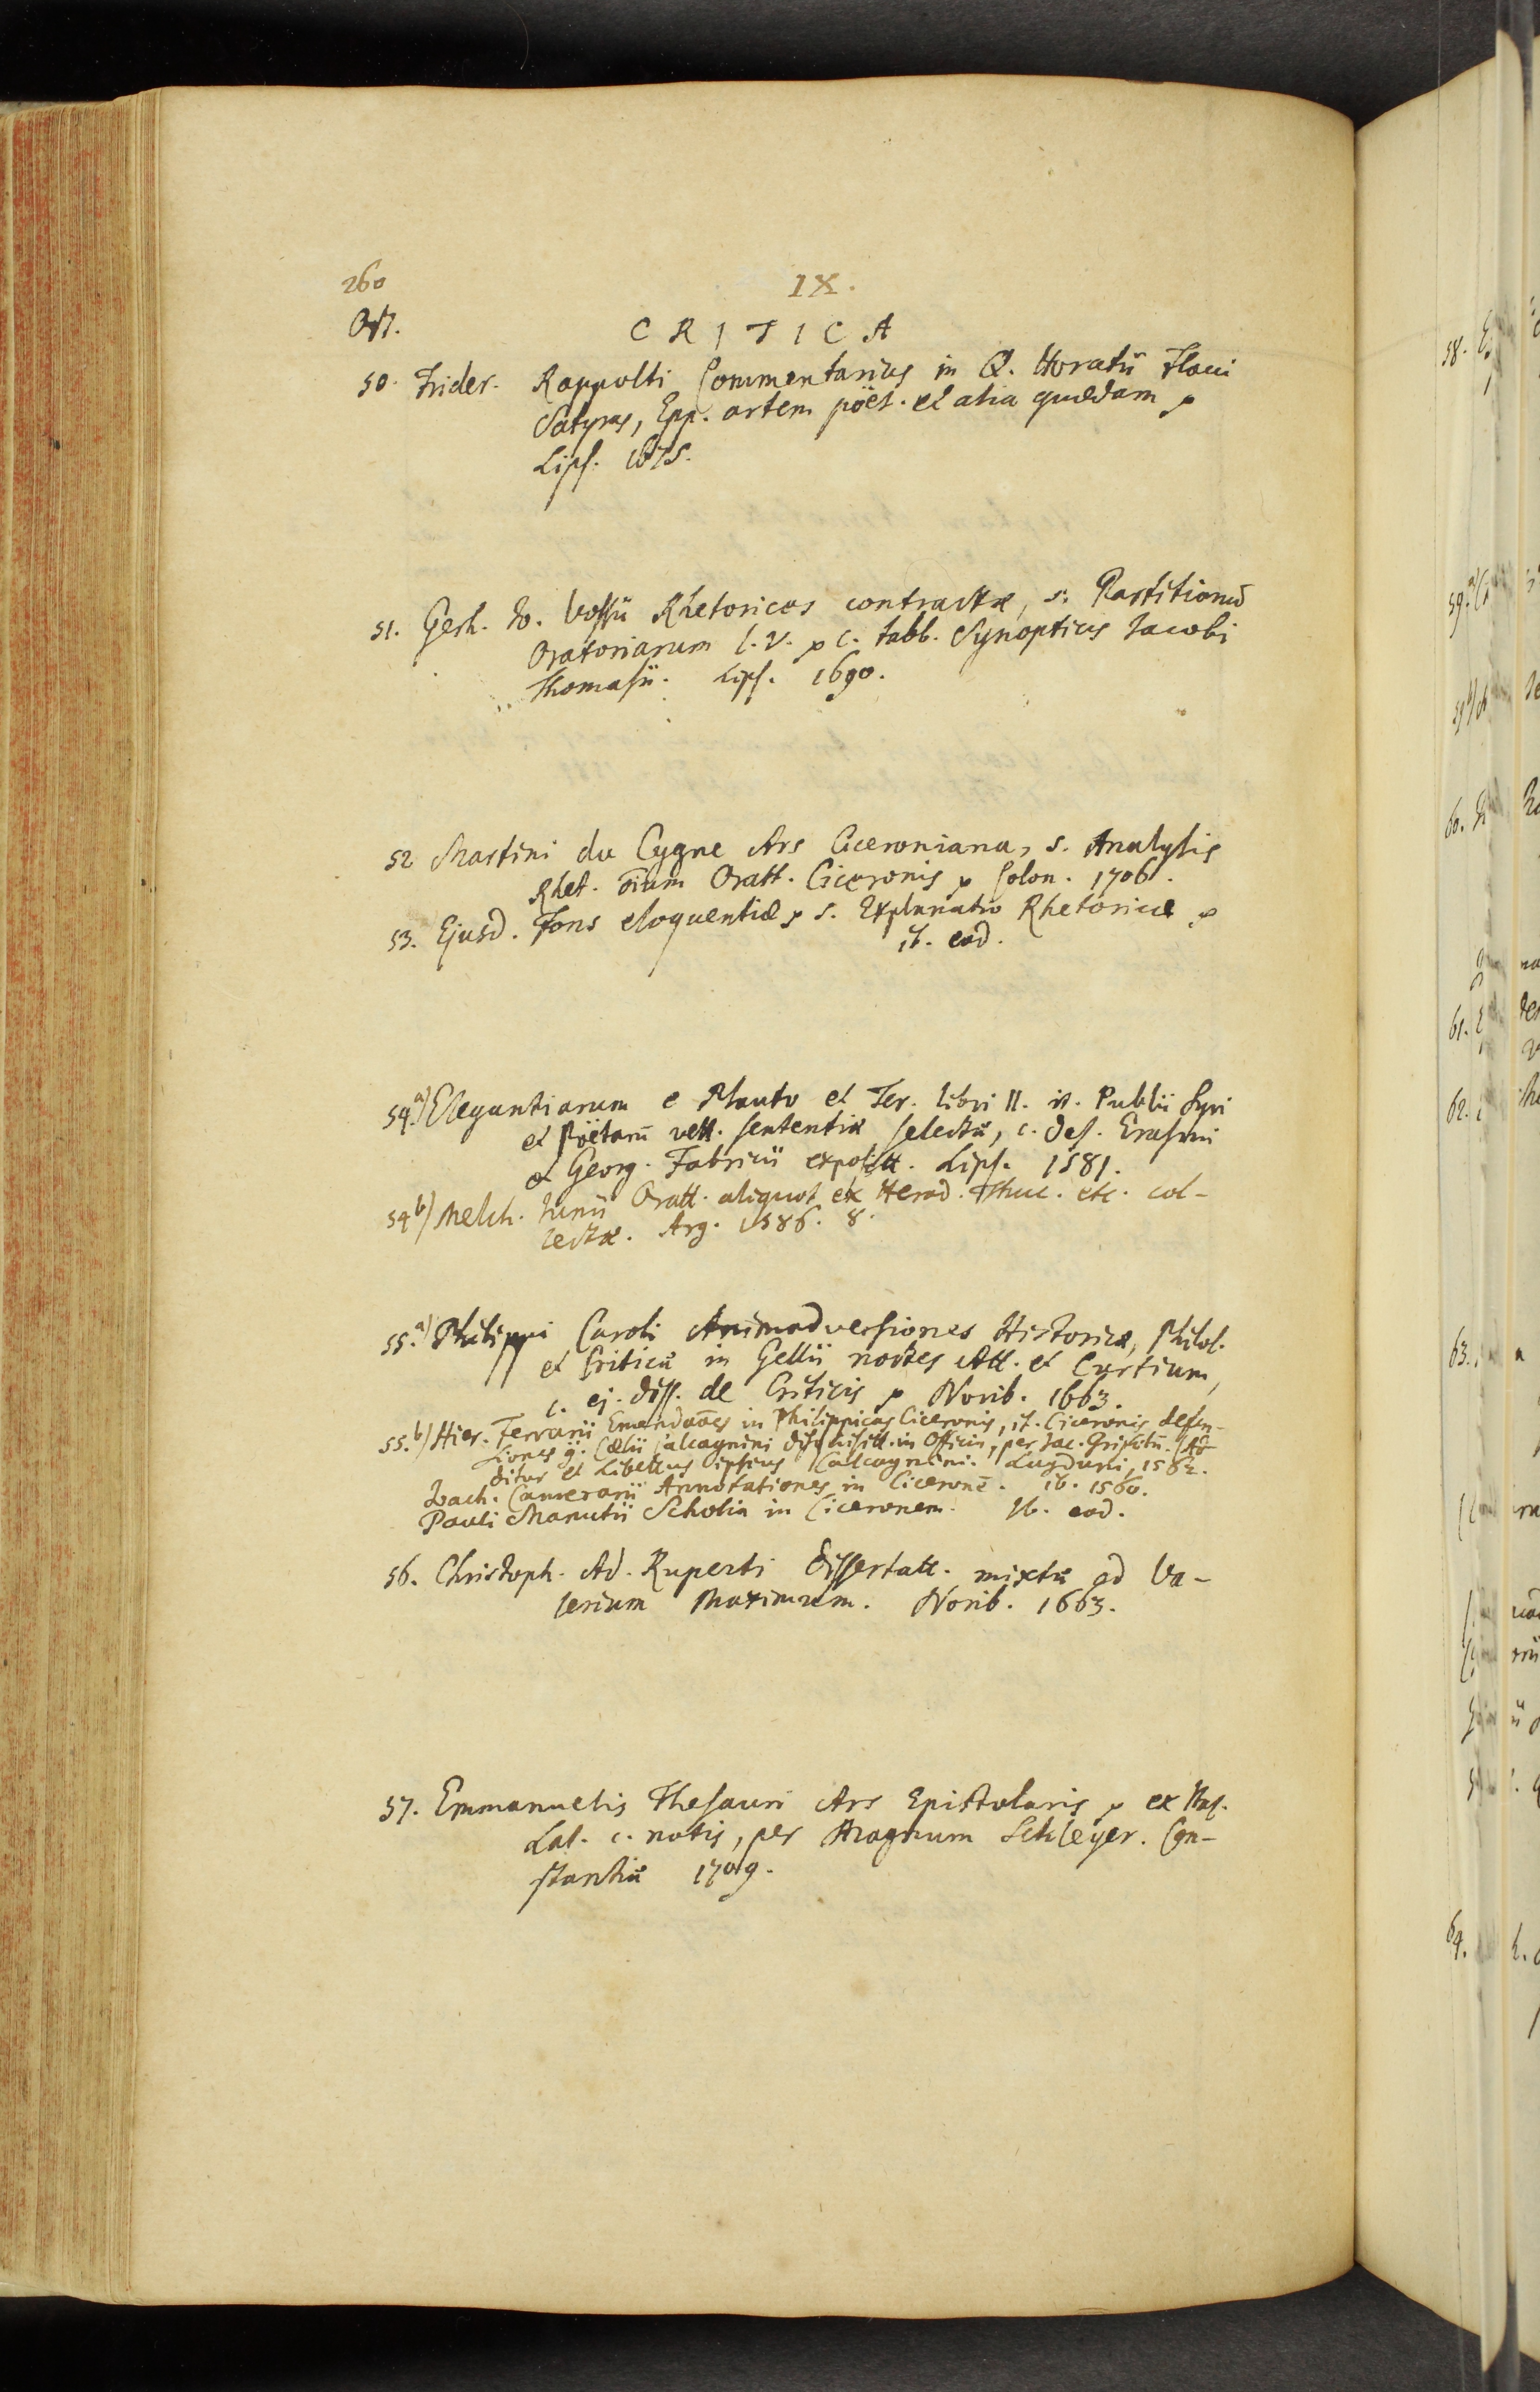 260
IX.
Oct.
CRITICA
50. Frider. Rappolti Commentarius in Q. Horatii Flacci
Satyras, Epp. artem poët. et alia quædam
Lips. 1675.
51. Gerh. Io. Vossii Rhetorices contractæ, s. Partitionū
Oratoriarum l. V. c. tabb. Synopticis Jacobi
Thomasii. Lips. 1690.
52 Martini du Cygne Ars Ciceroniana, s. Analysis
Rhet. oīum Oratt. Ciceronis Colon. 1706.
53. Ejusd. Fons eloquentiæ s. Explanatio Rhetoricæ
ib. ead.
54.a) Elegantiarum e Plauto et Ter. libri II. it. Publii Syri
et Poëtarū vett. sententiæ selectæ, c. Def. Erasmi
& Georg. Fabricii expositt. Lips. 1581.
54b) Melch. Junii Oratt. aliquot ex Herod. Thuc. etc. col-
lectæ. Arg. 1586. 8.
55.a) Philippi Caroli Animadversiones Historicæ, Philol.
et Criticæ in Gellii noctes Att. et Curtium,
c. ej. diss. de Criticis Norib. 1663.
55.b) Hier. Ferrarii Emendaōes in Philippicas Ciceronis, it. Ciceronis defen-
siones g. Cælii Calcagnini disquisitt. in Officia, per Jac. Grifolū. Ad-
ditur et Libellus ipsius Calcagnini. Lugduni, 1562.
Joach. Camerarii Annotationes in Ciceronē. ib. 1560.
Pauli Manutii Scholia in Ciceronem. Ib. ead.
56. Christoph. Ad. Ruperti Dissertatt. mixtæ ad Va-
lerium Maximum. Norib. 1663.
57. Emmanuelis Thesauri Ars Epistolaris ex Ital.
Lat. c. notis, per Magnum Schleyer. Con-
stantiæ 1709.